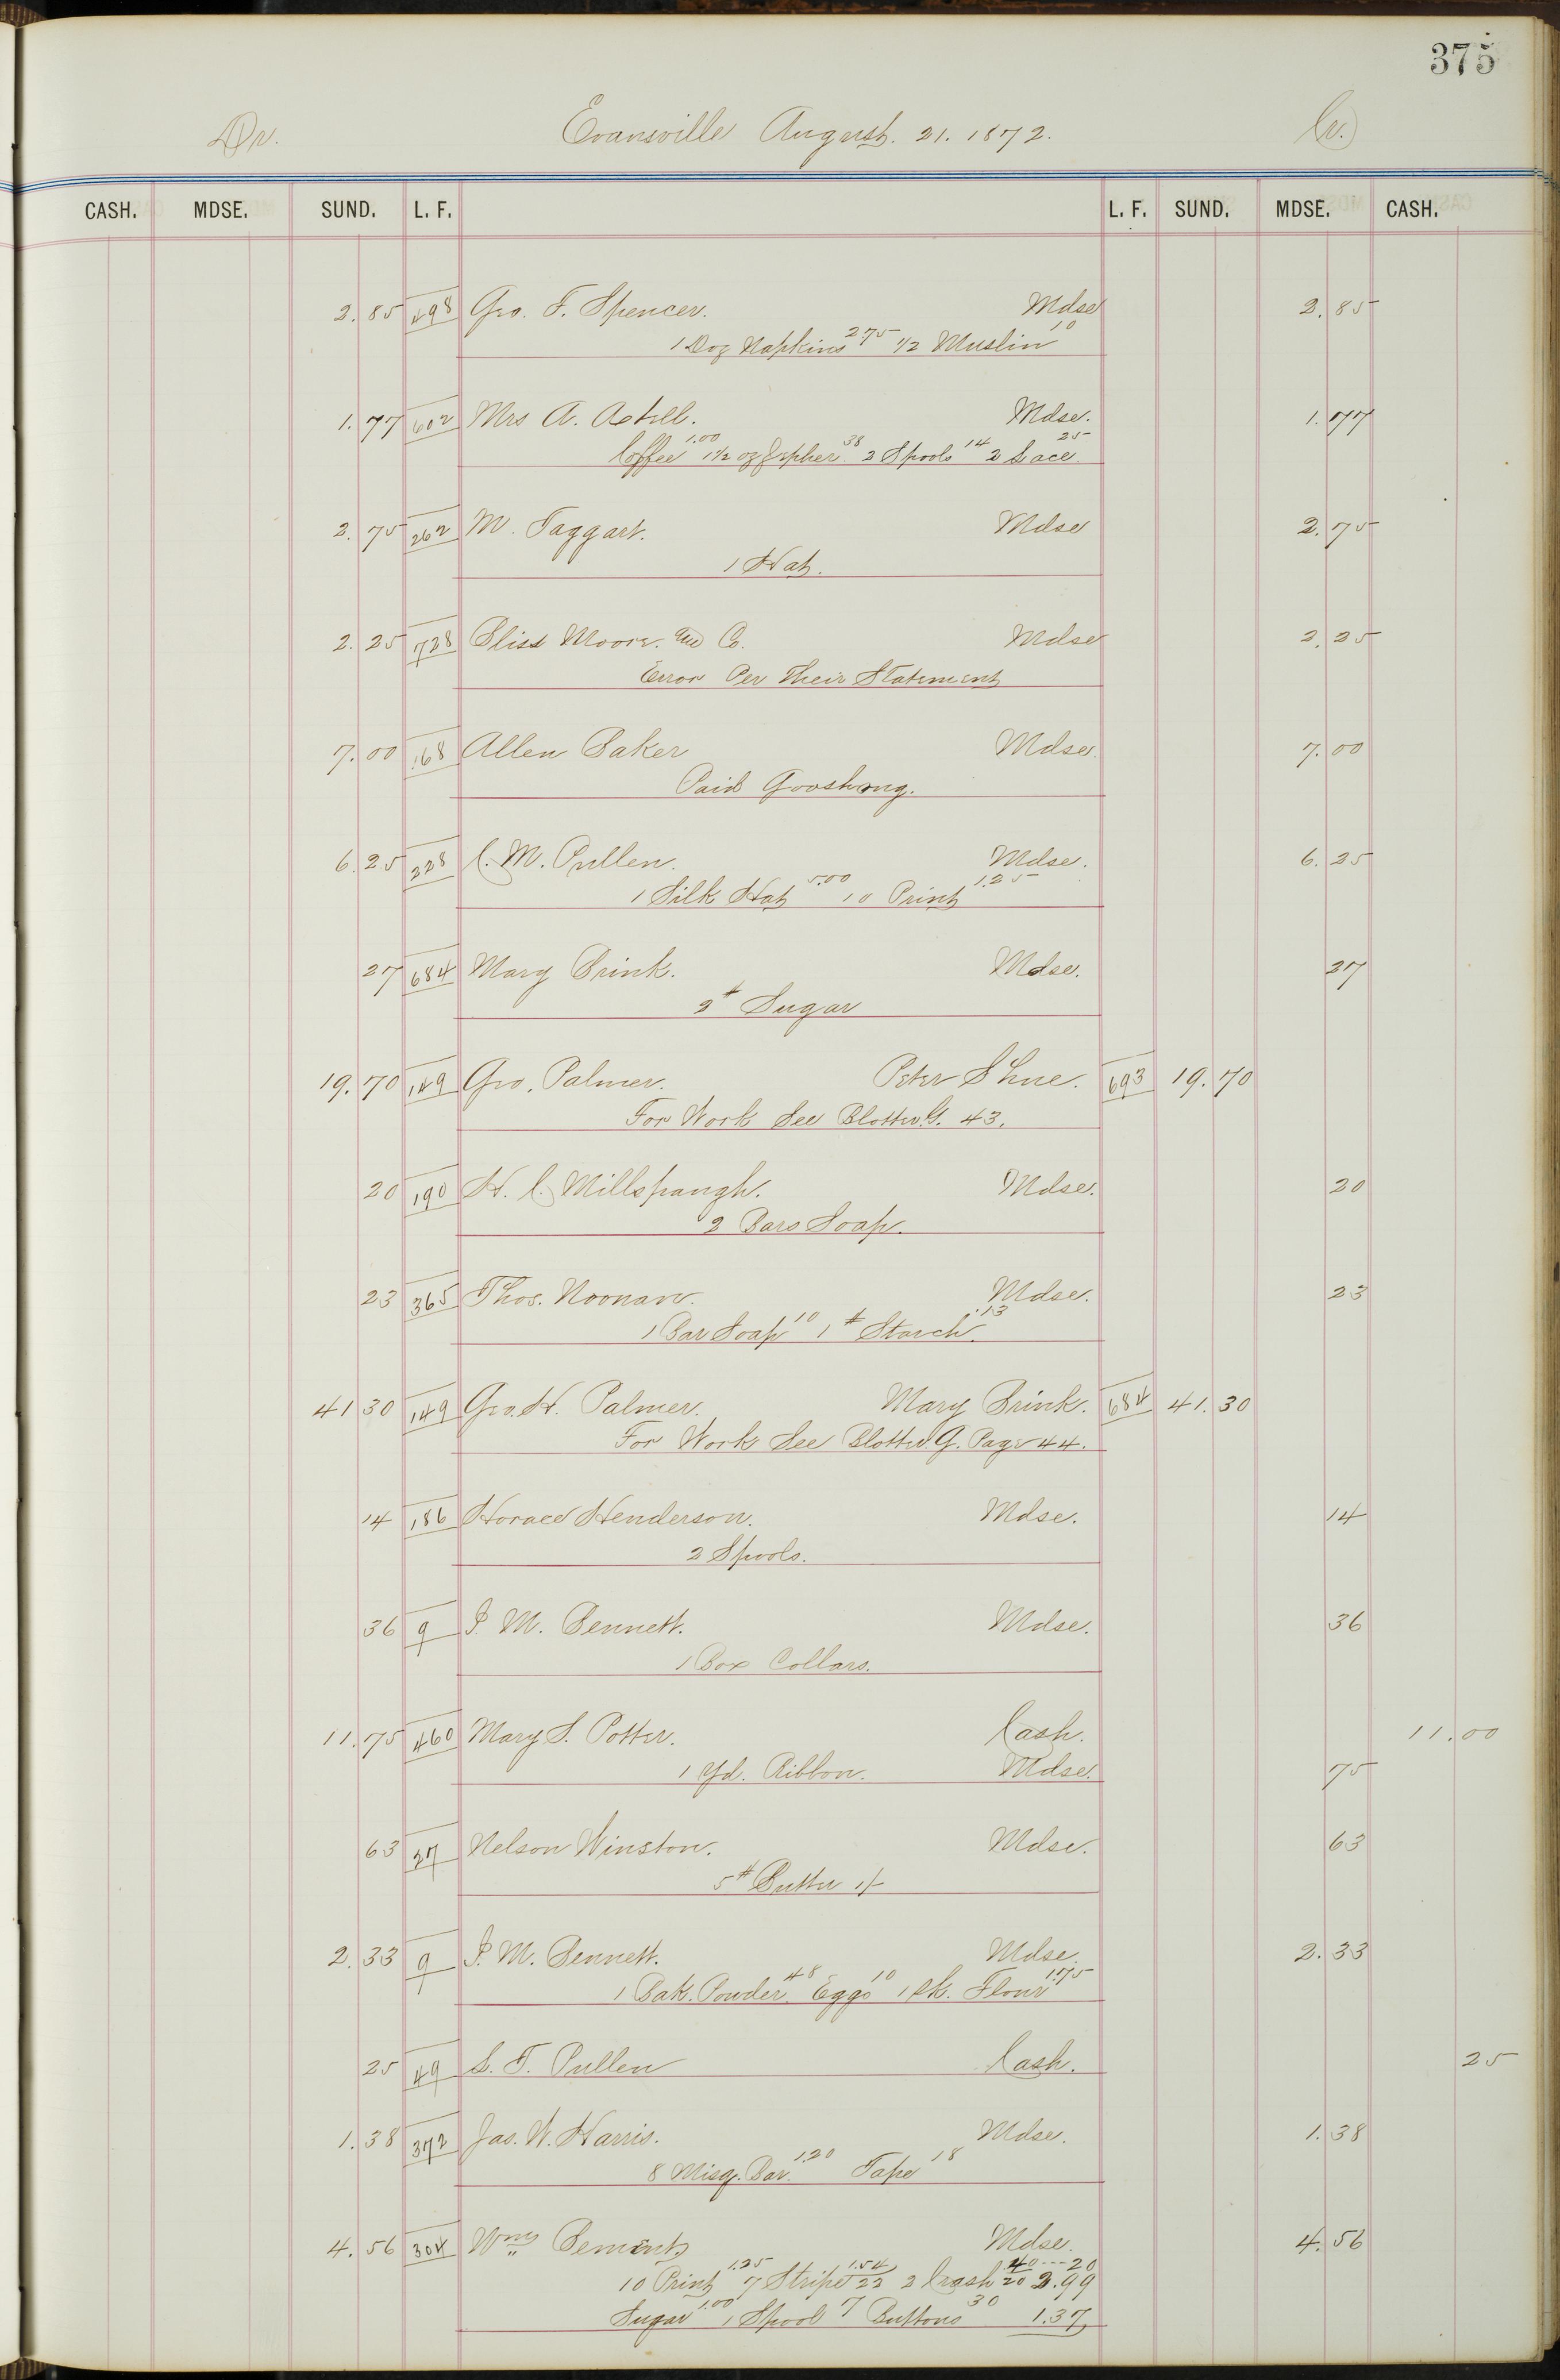 375
Dr. Evansville August. 21. 1872. Cr.
CASH. MDSE. SUND. L. F. L. F. SUND. MDSE. CASH.
2.85 498 Geo. F. Spencer. Mdse 2.85
1 Doz Napkins 275 1/2 Muslin 10
1.77 602 Mrs A. Axtell. Mdse. 1.77
Coffee 1.00 1 1/2 oz Zepher 38 2 Spools 14 2 Lace 25
2.75 262 M. Taggart. Mdse 2.75
1 Hat.
2.25 728 Bliss Moore and Co. Mdse 2.25
Error Per Their Statement
7.00 168 Allen Baker Mdse. 7.00
Paid
6.25 228 C. M. Pullen. Mdse. 6.25
1 Silk Hat 5.00 10 Print 1.25
27 684 Mary Brink. Mdse. 27
2# Sugar
19.70 149 Geo. Palmer. Peter Shue. 693 19.70
For Work See Blotter G. 43.
20 190 H. C. Millspaugh. Mdse. 20
2 Bars Soap.
23 365 Thos. Noonan. Mdse. 23
1 Bar Soap 10 1# Starch .13
41 30 149 Geo. H. Palmer. Mary Brink. 684 41.30
For Work See Blotter G. Page 44.
14 186 Horace Henderson. Mdse. 14
2 Spools.
36 9 I. M. Bennett. Mdse. 36
1 Box Collars.
11.75 460 Mary S. Potter. Cash. 11.00
1 Yd. Ribbon. Mdse. 75
63 27 Nelson Winston. Mdse. 63
5# Butter 1/-
2.33 9 I. M. Bennett. Mdse. 2.33
1 Bak. Powder 48 Eggs 10 1 Sk. Flour 1.75
25 49 L. T. Pullen Cash. 25
1.38 372 Jas. W. Harris. Mdse. 1.38
8 Misq. Bar. 1.20 Tape 18
4.56 304 Wm Bement Mdse. 4.56
10 Print 1.25 7 Stripe 1.54 22 2 Crash 40 20 20 2.99
Sugar 1.00 1 Spool 7 Buttons 30 1.37